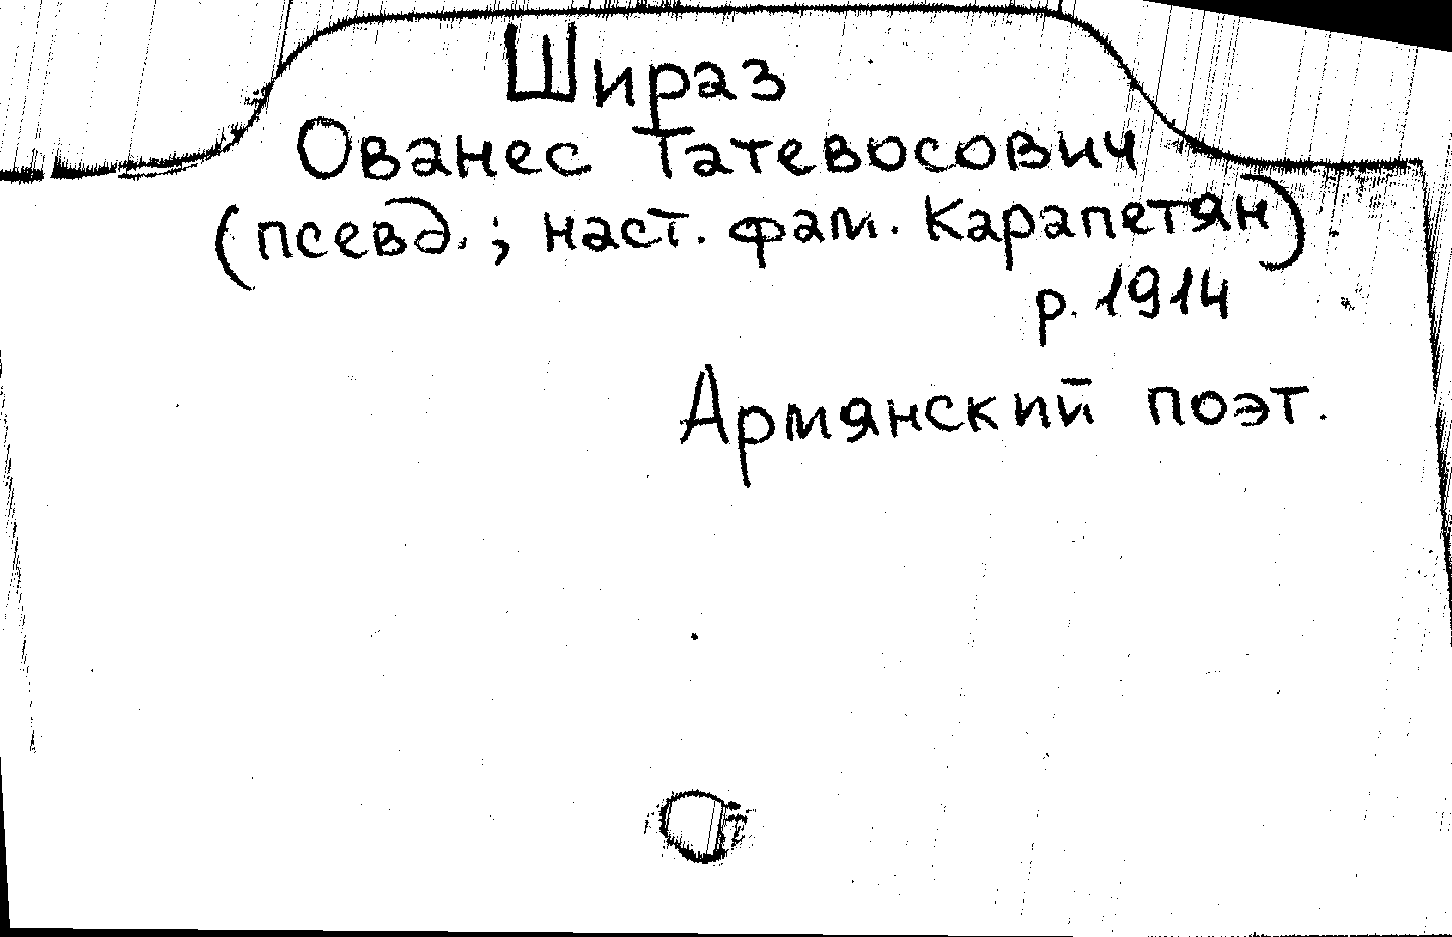 Шираз
Ованес Татевосович
(псевд.; наст. фам. Карапетян)
р. 1914
Армянский поэт.